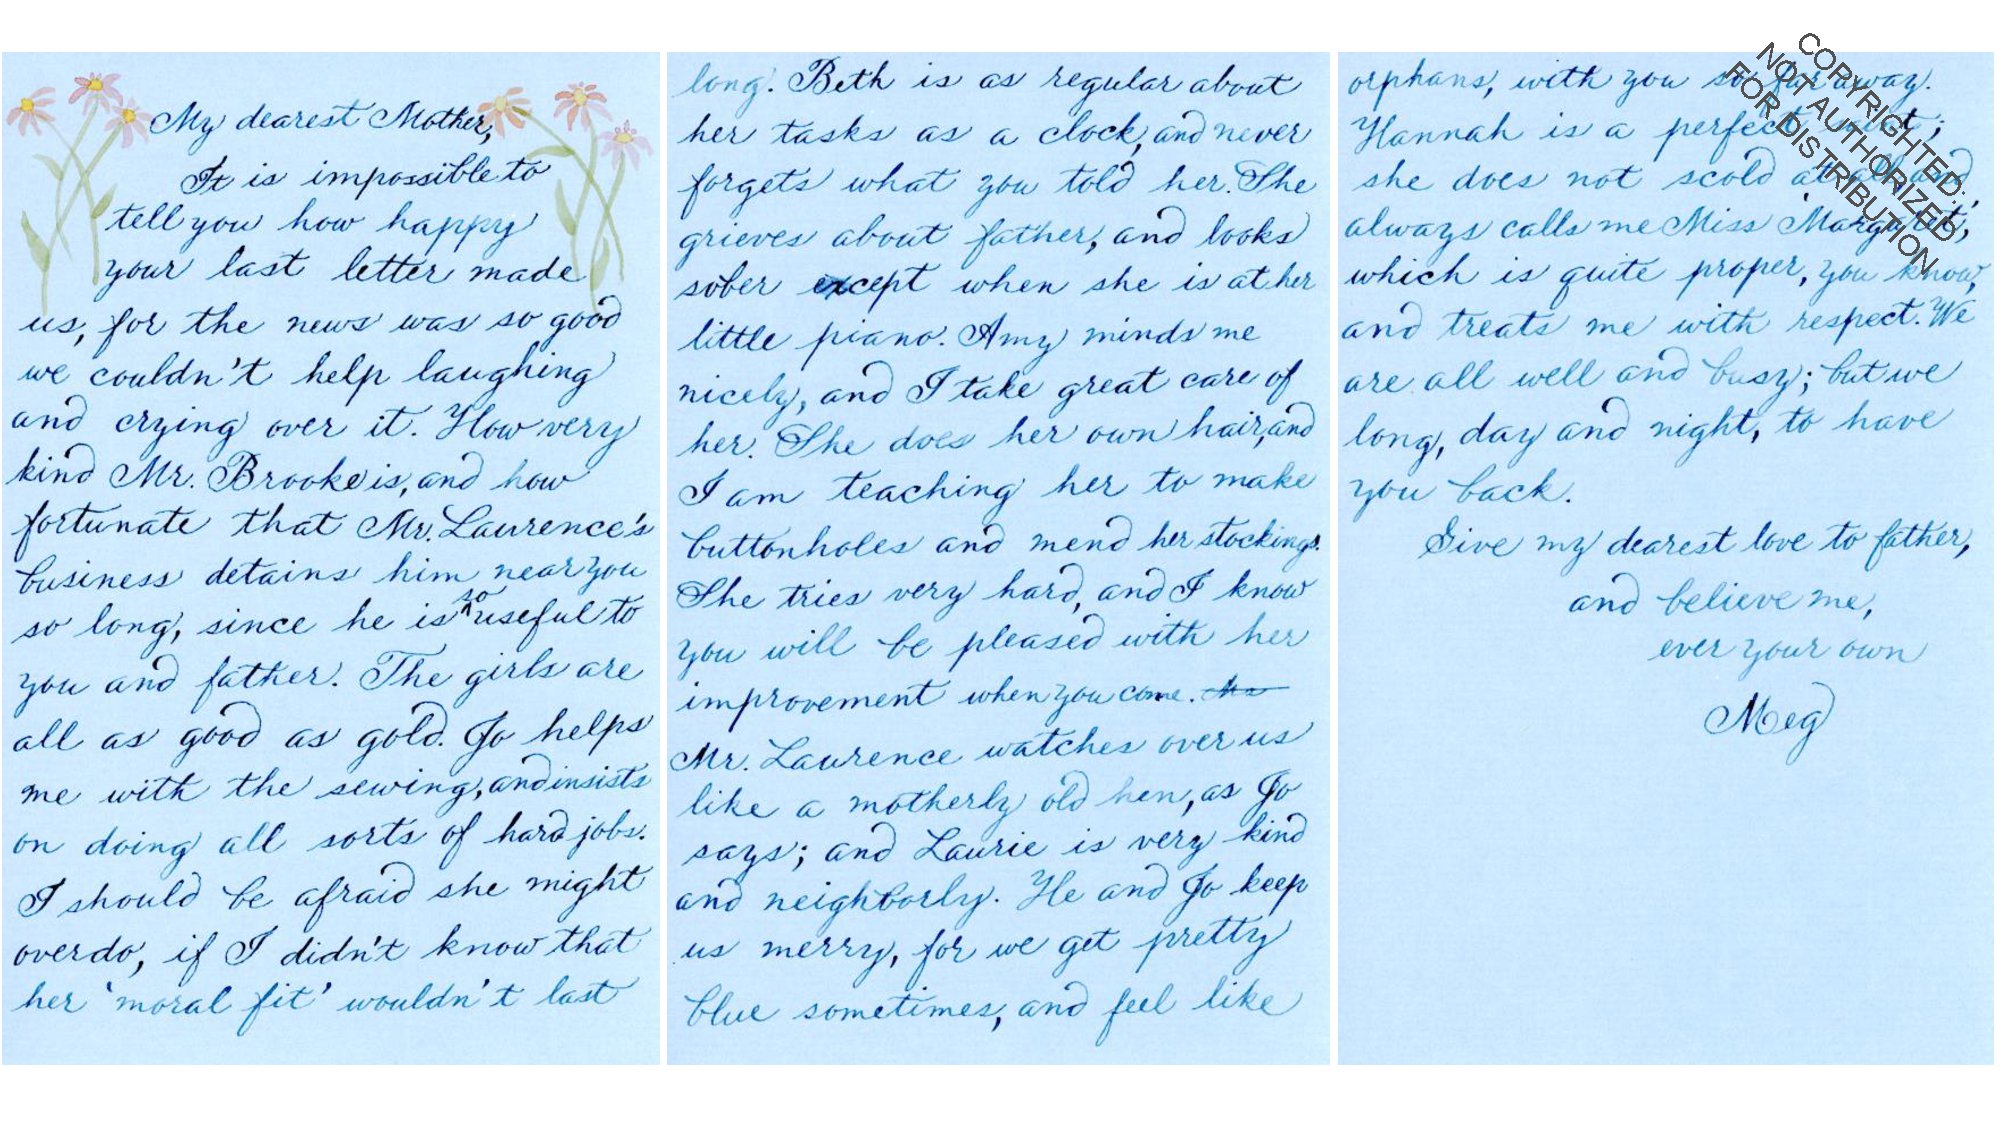 My dearest Mother,
It is impossible to
tell you how happy
your last letter made
us, for the news was so good
we couldn't help laughing
and crying over it. How very
kind Mr. Brooke is, and how
fortunate that Mr. Laurence's
business detains him near you
so long, since he is so useful to
you and father. The girls are
all as good as gold. Jo helps
me with the sewing, and insists
on doing all sorts of hard jobs.
I should be afraid she might
overdo, if I didn't know that
her 'moral fit' wouldn't last
long. Beth is as regular about
her tasks as a clock, and never
forgets what you told her. She
grieves about father, and looks
sober except when she is at her
little piano. Amy minds me
nicely, and I take great care of
her. She does her own hair, and
I am teaching her to make
buttonholes and mend her stockings.
She tries very hard, and I know
you will be pleased with her
improvement when you come.
Mr. Laurence watches over us
like a motherly old hen, as Jo
says; and Laurie is very kind
and neighborly. He and Jo keep
us merry, for we get pretty
blue sometimes, and feel like
orphans, with you so far away.
Hannah is a perfect saint;
she does not scold at all, and
always calls me Miss 'Margaret,'
which is quite proper, you know,
and treats me with respect. We
are all well and busy; but we
long, day and night, to have
you back.
Give my dearest love to father,
and believe me,
ever your own
Meg
COPYRIGHTED.
NOT AUTHORIZED
FOR DISTRIBUTION